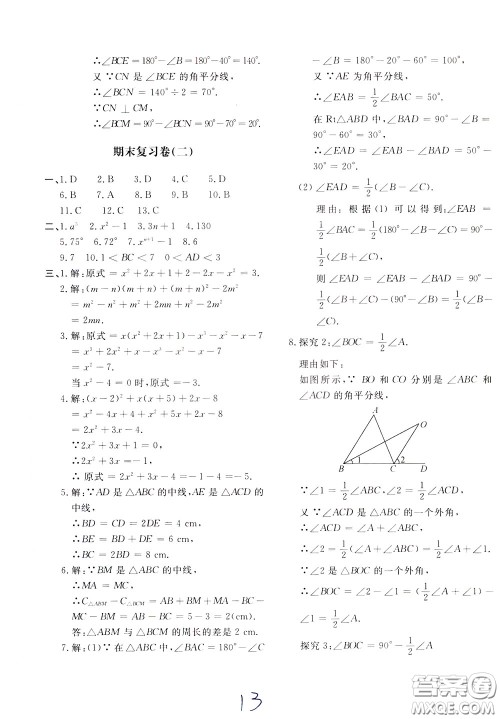 ∴∠BCE=180°-∠B=180°-40°=140°.
又∵CN是∠BCE的角平分线,
∴∠BCN=140°÷2=70°.
∵CN⊥CM,
∴∠BCM=90°-∠BCN=90°-70°=20°.
期末复习卷(二)
一、1.D 2.B 3.D 4.B 5.D
6.B 7.A 8.B 9.D 10.B
11.C 12.C 13.C
二、1.a 2.x²-1 3.3n+1 4.130
5.75° 6.72° 7.xⁿ⁺¹-1 8.6
9.7 10.1<BC<7 0<AD<3
三、1.解:原式=x²+2x+1+2-2x-x²=3.
2.解:(m-n)(m+n)+(m+n)²-2m²
=m²-n²+m²+2mn+n²-2m²
=2mn.
3.解:原式=x(x²+2x+1)-x³-x²-x-7
=x³+2x²+x-x³-x²-x-7
=x²-7.
当x²-4=0时,原式=-3.
4.解:(x-2)²+(x+3)(x+4)-5x-6
=2x²+3x-4.
∵2x²+3x+1=0,
∴2x²+3x=-1.
∴原式=2x²+3x-4=-1-4=-5.
5.解:∵AD是△ABC的中线,AE是△ACD的
中线,
∴BD=CD=2DE=4 cm,
∴BC=2BD=8 cm.
6.解:∵BM是△ABC的中线,
∴MA=MC.
∴C△ABM-C△BCM=AB+BM+MA-BC-
MC-BM=AB-BC=5-3=2(cm).
答:△ABM与△BCM的周长的差是2 cm.
7.解:(1)∵在△ABC中,∠BAC=180°-∠C
-∠B=180°-20°-60°=100°.
又∵AE为角平分线,
∴∠EAB=1/2∠BAC=50°.
在Rt△ABD中,∠BAD=90°-∠B=
90°-60°=30°,
∴∠EAD=∠EAB-∠BAD=50°-30°=20°.
(2)∠EAD=1/2(∠B-∠C).
理由:根据(1)可以得到:∠EAB=
1/2∠BAC=1/2(180°-∠B-∠C),∠BAD
=90°-∠B,
则∠EAD=∠EAB-∠BAD=1/2(180°-
∠B-∠C)-(90°-∠B)=1/2(∠B-∠C).
8.探究2:∠BOC=1/2∠A.
理由如下:
如图所示,∵BO和CO分别是∠ABC和
∠ACD的角平分线,
A
O
1
2
B
C
D
∵∠1=1/2∠ABC,∠2=1/2∠ACD,
又∵∠ACD是△ABC的一个外角,
∴∠2=1/2∠ACD=1/2(∠A+∠ABC)=1/2∠A+∠1.
∵∠2是△BOC的一个外角,
∴∠BOC=∠2-∠1=1/2∠A+∠1-
∠1=1/2∠A.
探究3:∠BOC=90°-1/2∠A
13